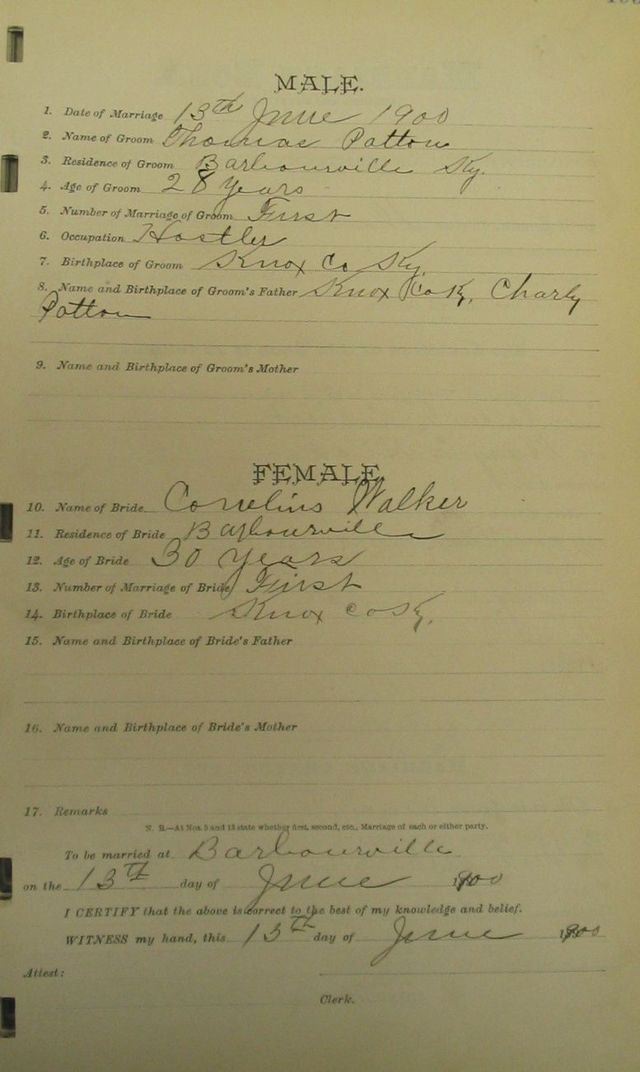 MALE.
1. Date of Marriage 13th June 1900
2. Name of Groom Thomas Patton
3. Residence of Groom Barbourville Ky.
4. Age of Groom 28 years
5. Number of Marriage of Groom First
6. Occupation Hostler
7. Birthplace of Groom Knox Co Ky.
8. Name and Birthplace of Groom's Father Knox Co K, Charly
Patton
9. Name and Birthplace of Groom's Mother
FEMALE
10. Name of Bride Cornelius Walker
11. Residence of Bride Barbourville
12. Age of Bride 30 years
13. Number of Marriage of Bride First
14. Birthplace of Bride Knox Co Ky.
15. Name and Birthplace of Bride's Father
16. Name and Birthplace of Bride's Mother
17. Remarks
N. B.—At Nos. 5 and 13 state whether first, second, etc., Marriage of each or either party.
To be married at Barbourville
on the 13th day of June 1900
I CERTIFY that the above is correct to the best of my knowledge and belief.
WITNESS my hand, this 13th day of June 1900
Attest:
Clerk.